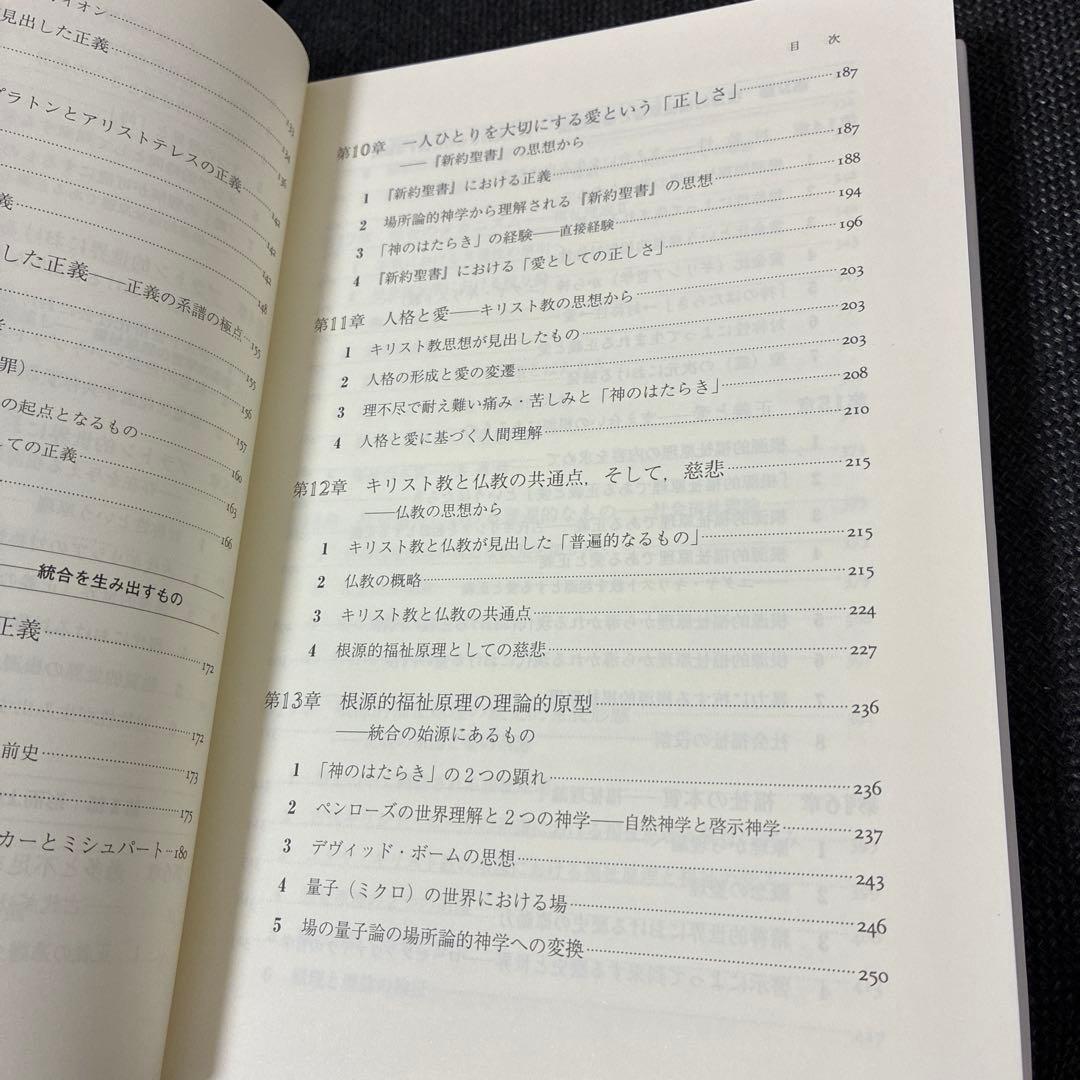 イオン
見出した正義
133
134
プラトンとアリストテレスの正義
136
142
義
142
142
した正義――正義の系譜の極点
148
155
155
罪）
156
の起点となるもの
157
ての正義
160
163
166
統合を生み出すもの
正義
172
172
前史
173
175
カーとミシュパート
180
目　次
第10章　一人ひとりを大切にする愛という「正しさ」 187
――『新約聖書』の思想から
1　『新約聖書』における正義 187
2　場所論的神学から理解される『新約聖書』の思想 188
3　「神のはたらき」の経験――直接経験 194
4　『新約聖書』における「愛としての正しさ」 196
第11章　人格と愛――キリスト教の思想から 203
1　キリスト教思想が見出したもの 203
2　人格の形成と愛の変遷 203
3　理不尽で耐え難い痛み・苦しみと「神のはたらき」 208
4　人格と愛に基づく人間理解 210
第12章　キリスト教と仏教の共通点，そして，慈悲 215
――仏教の思想から
1　キリスト教と仏教が見出した「普遍的なるもの」 215
2　仏教の概略 215
3　キリスト教と仏教の共通点 224
4　根源的福祉原理としての慈悲 227
第13章　根源的福祉原理の理論的原型 236
――統合の始源にあるもの
1　「神のはたらき」の2つの顕れ 236
2　ペンローズの世界理解と2つの神学――自然神学と啓示神学 237
3　デヴィッド・ボームの思想 243
4　量子（ミクロ）の世界における場 246
5　場の量子論の場所論的神学への変換 250